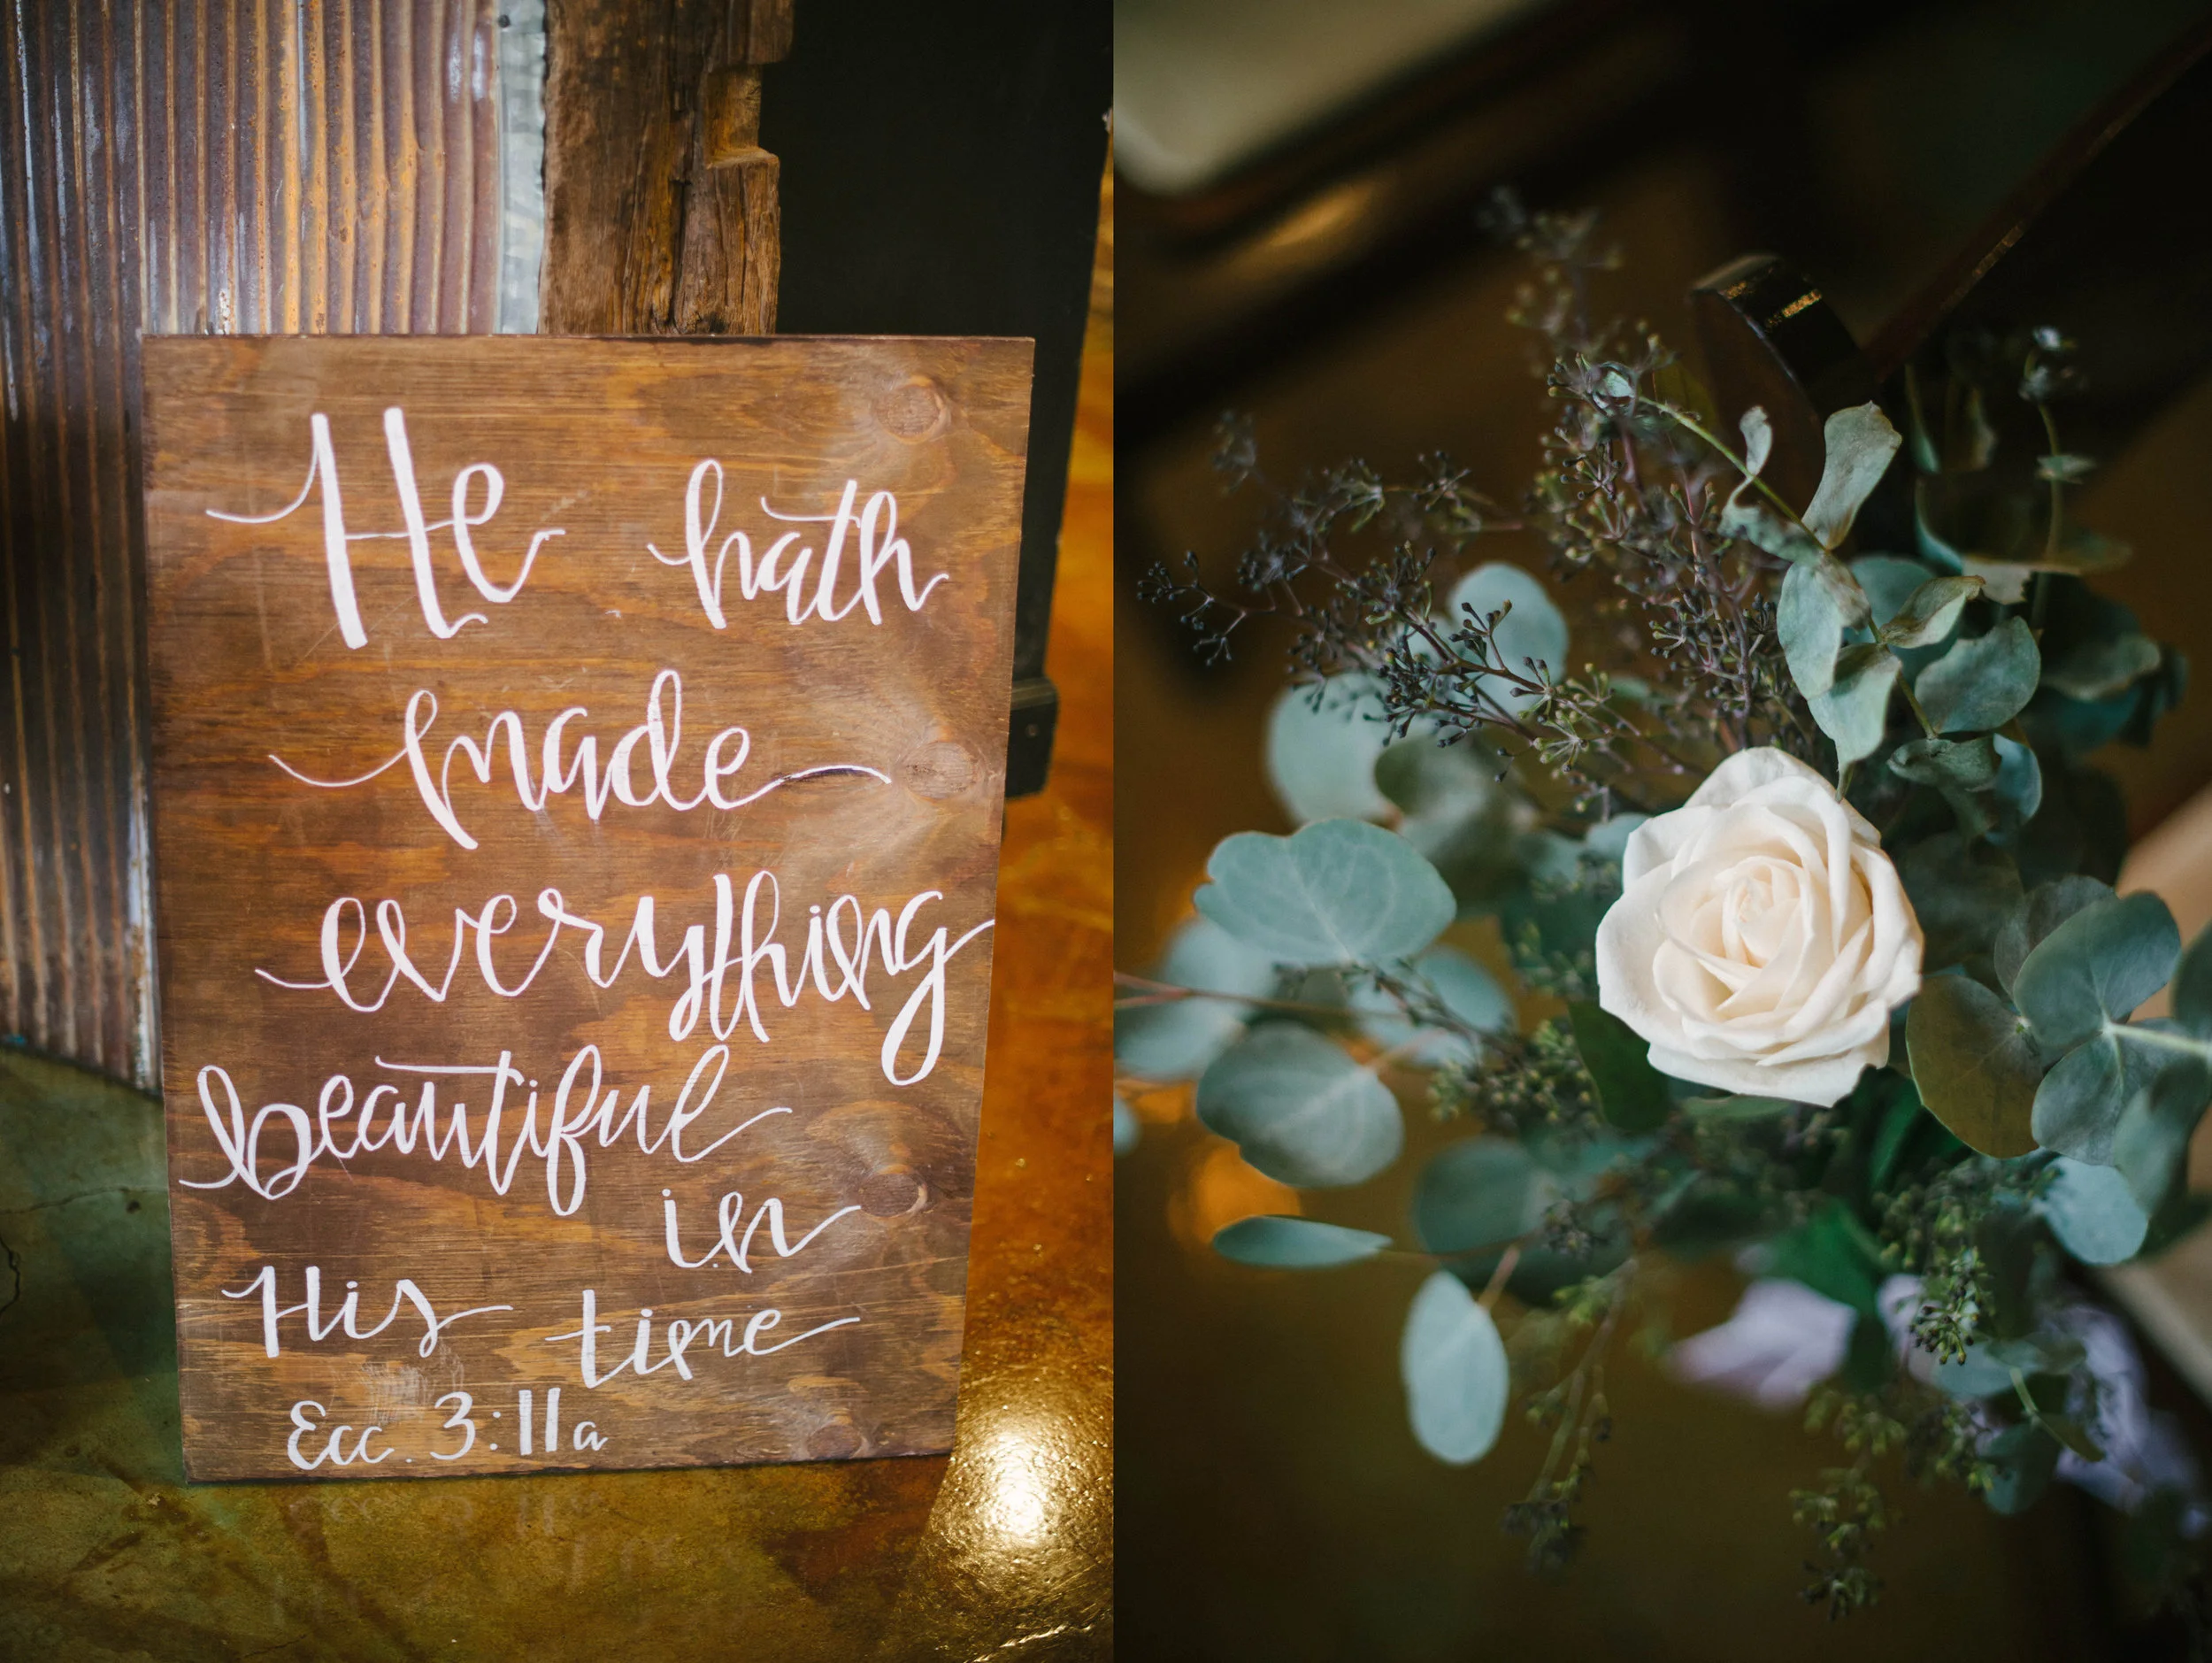 He hath
made
everything
beautiful
in
His time
Ecc. 3:11a